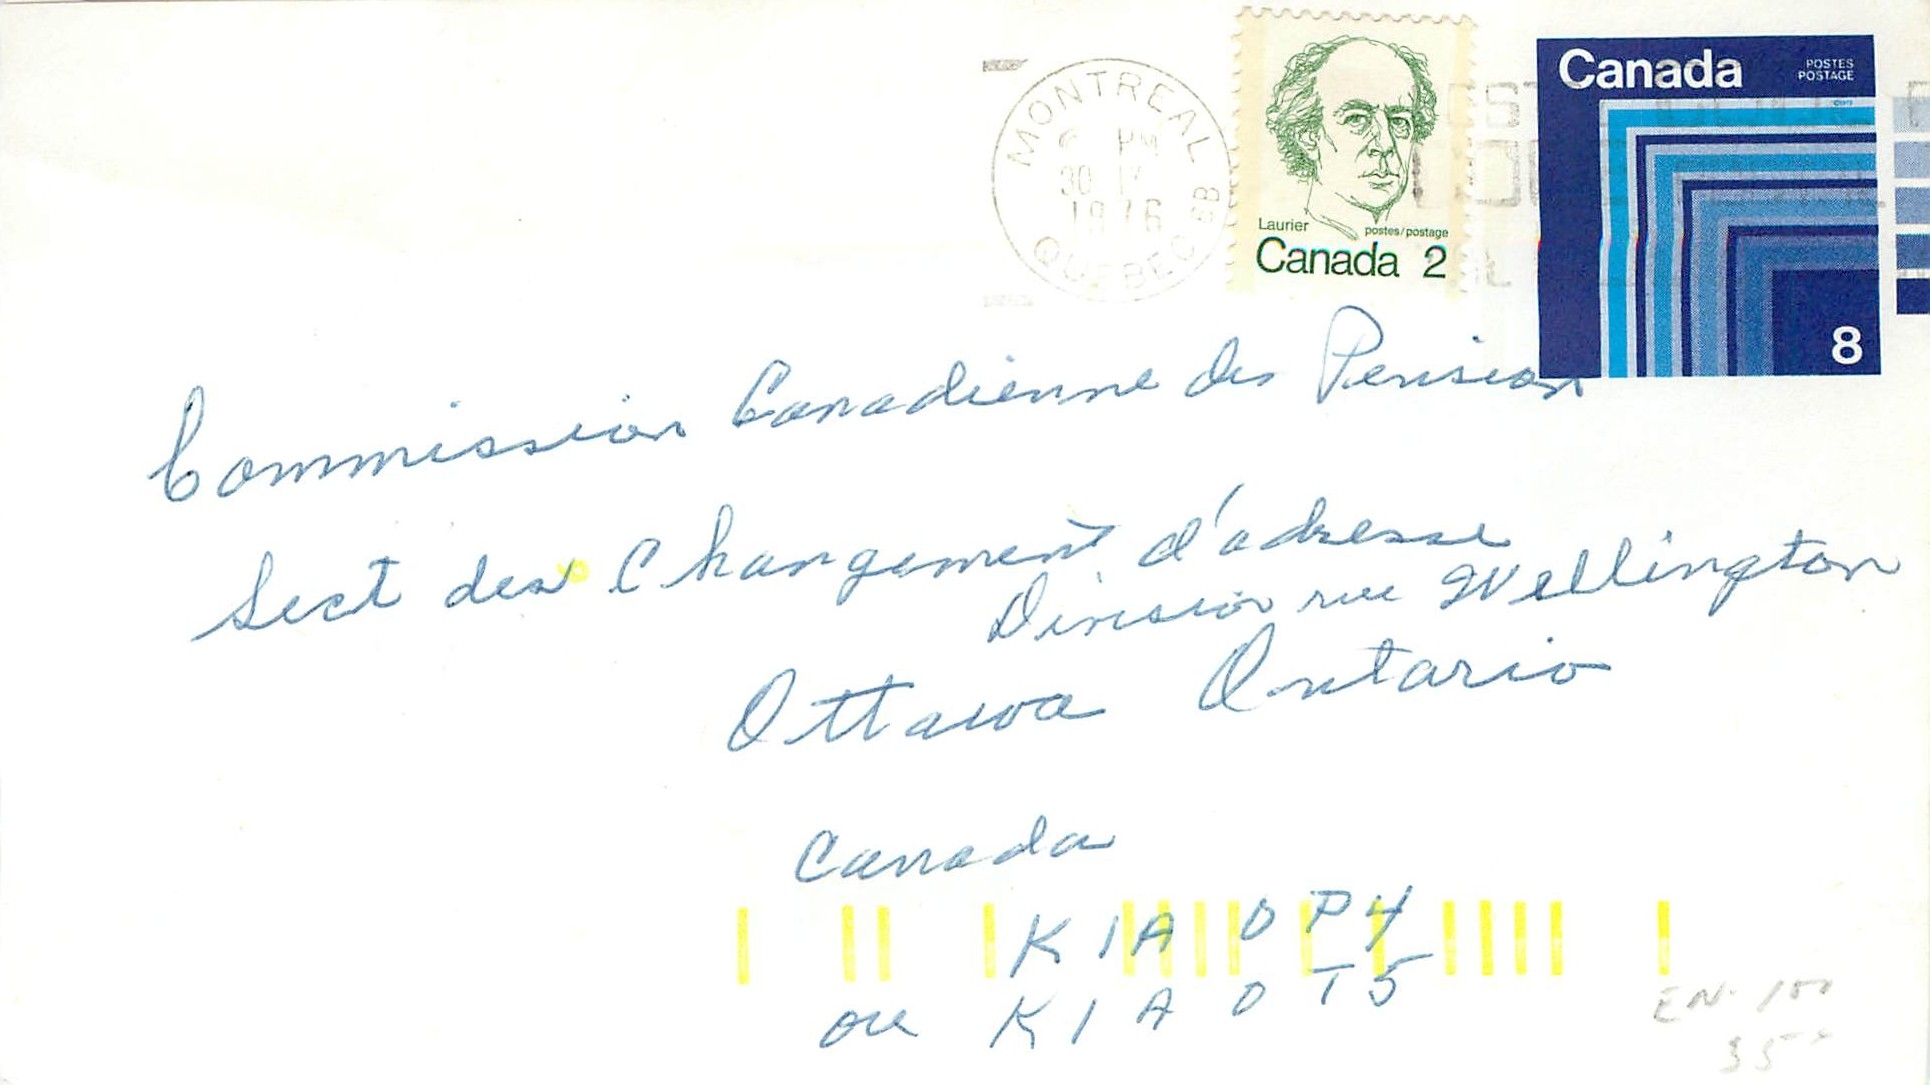 MONTREAL
PM
30 IV
1976
QUÉBEC
Laurier
postes/postage
Canada 2
Canada
POSTES
POSTAGE
8
Commission Canadienne des Pension
Sect des Changement d'adresse
Division rue Wellington
Ottawa Ontario
Canada
K1A 0P4
ou K1A 0T5
EN-100